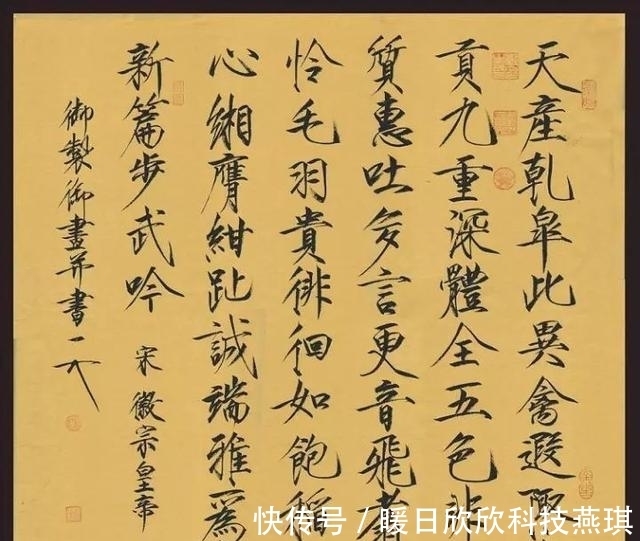 天產乾皋此異禽遐陬
貢九重深體全五色非
質惠吐多言更音飛翥
怜毛羽貴徘徊如飽稻
心緗膺紺趾誠端雅爲
新篇步武吟 宋徽宗皇帝
御製御畫并書一人
快传号/暖日欣欣科技燕琪